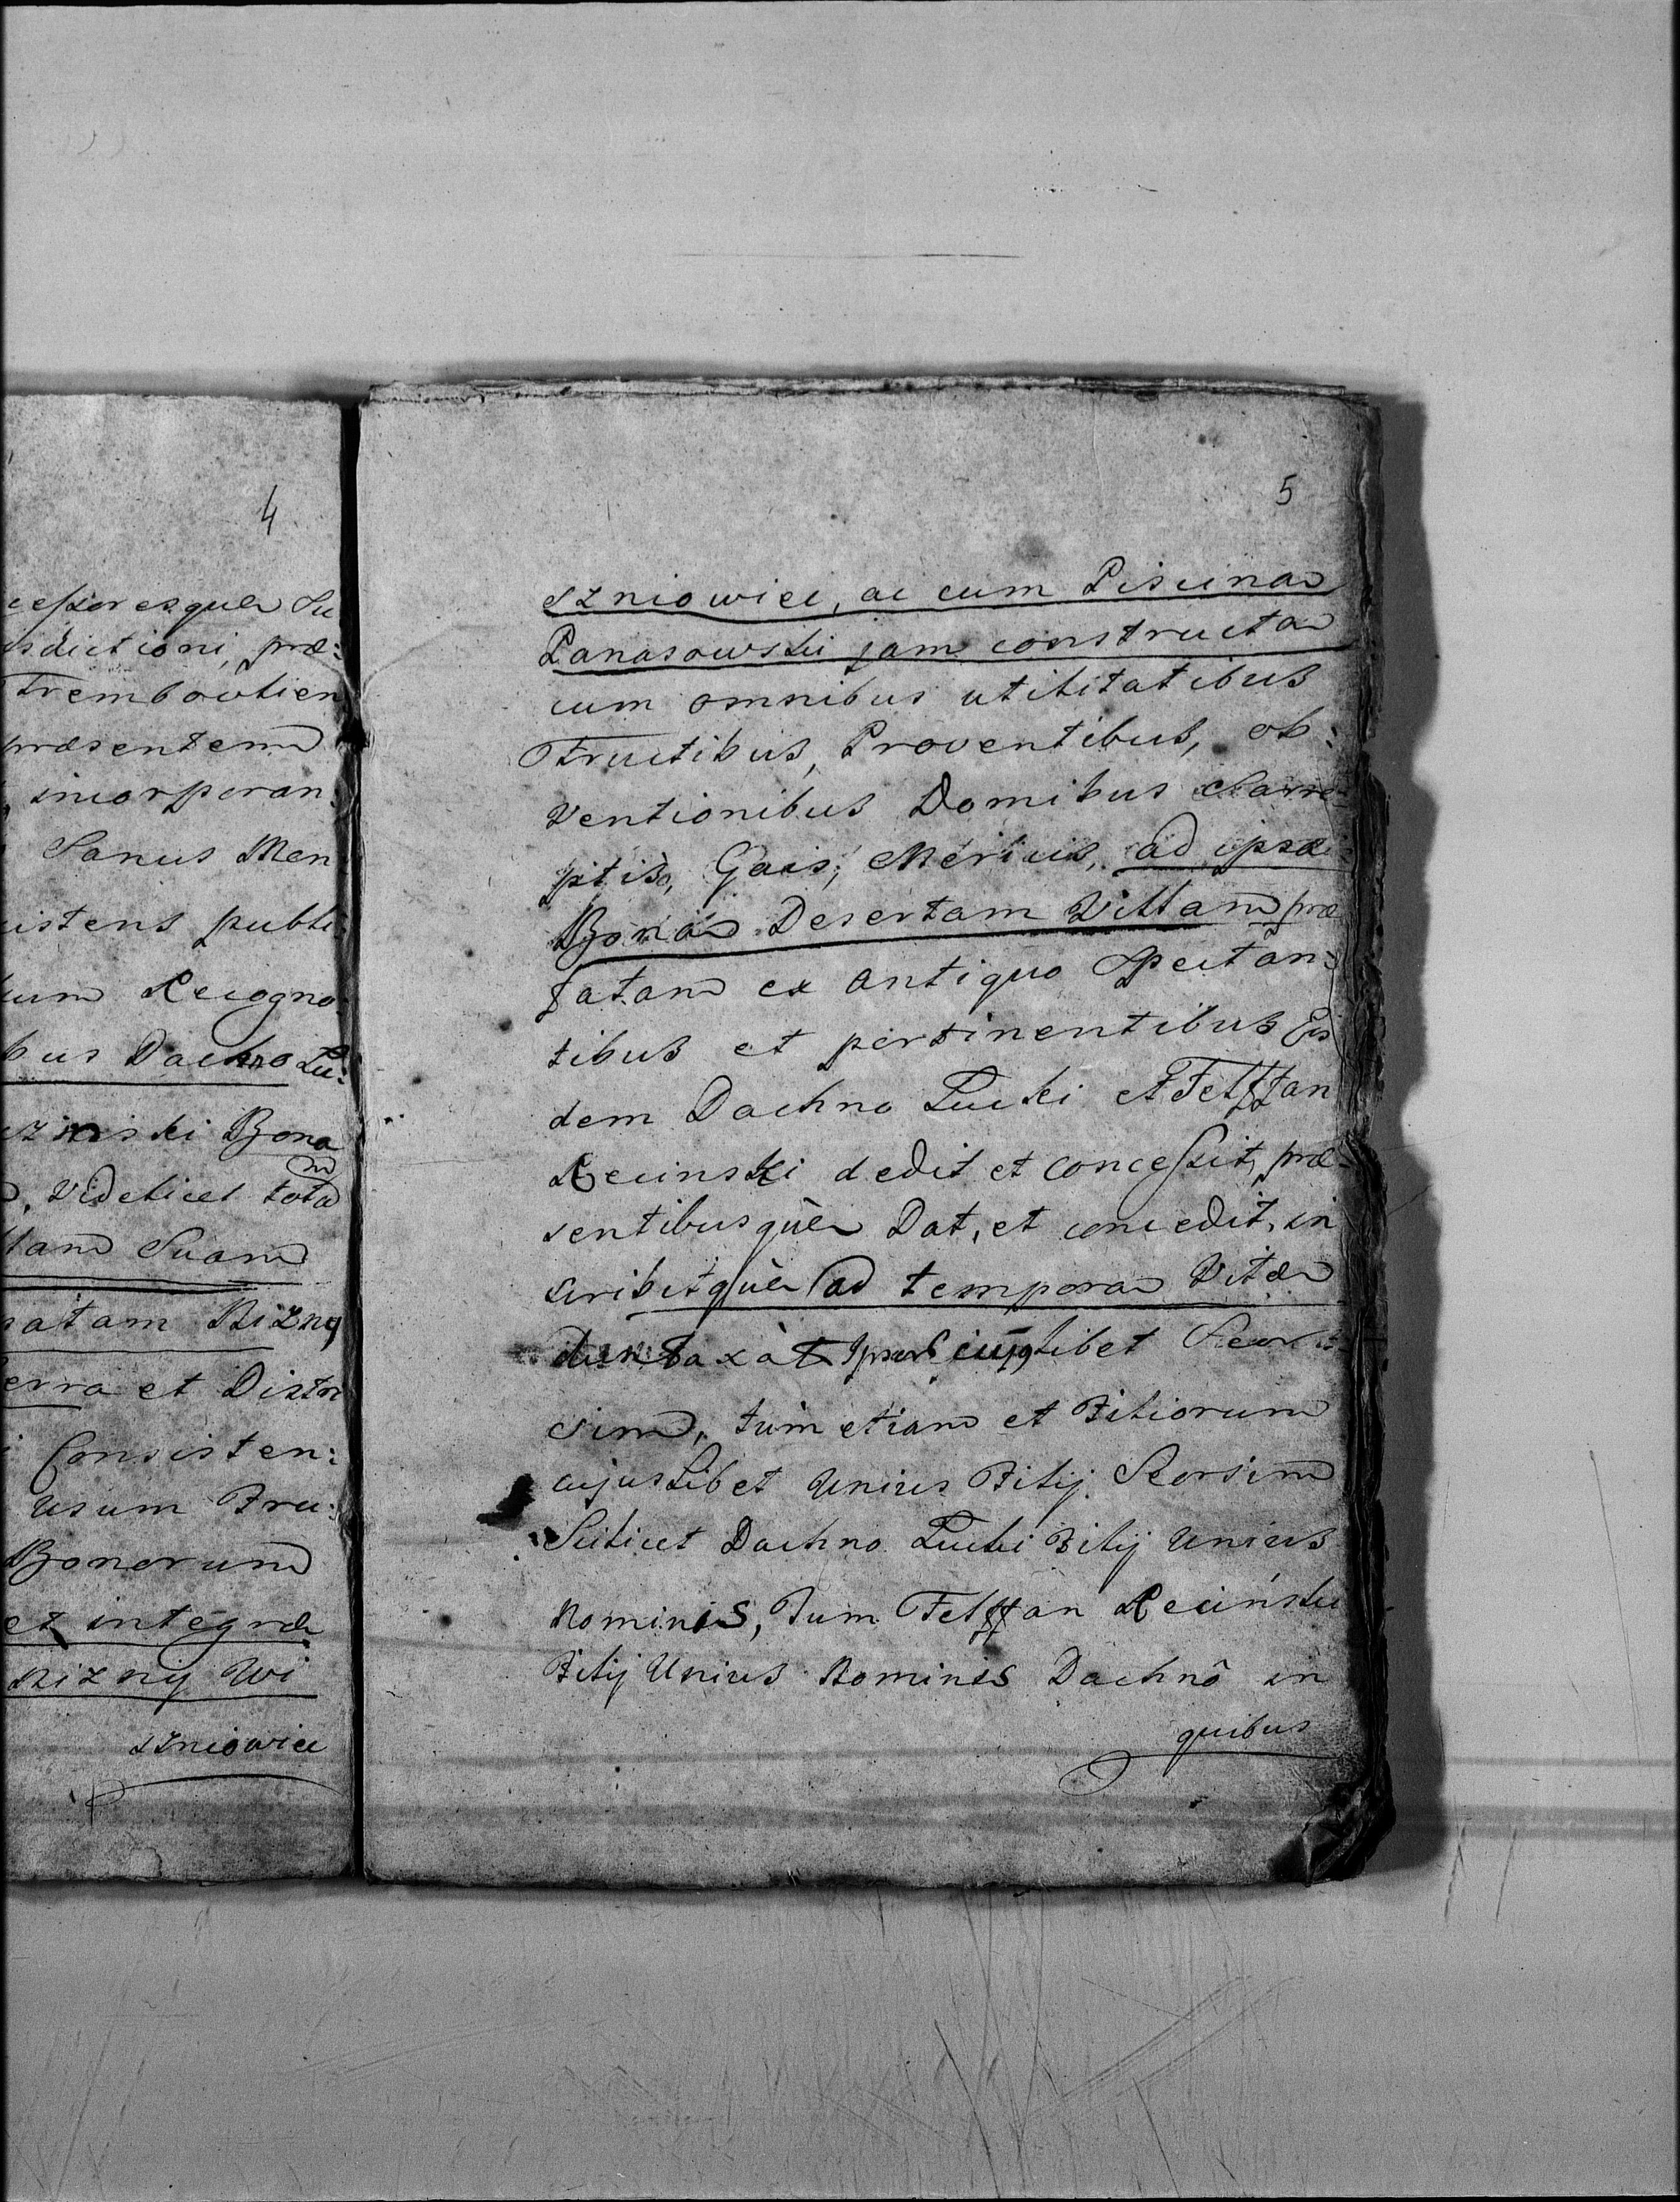 4
cessoresque Su
isdictioni, præ:
Trembovlien
præsentem
incorporan:
Sanus Men
istens publi:
Recogno:
bus Dachno Lu:
Bona
, Videlicet totam
lam Suam
natam Nizny
erra et Distri
Consisten:
Usum Fru:
Bonorum
et integræ
Nizny Wi
szniowice
5
szniowice, ac cum Piscina
Panasowski jam constructa
cum omnibus utilitatibus
Fructibus, Proventibus, ob:
ventionibus Domibus
Gais, Mericis, ad ipsa
Bona Desertam Villam præ
fatam ex antiquo Spectan:
tibus et pertinentibus Eis
dem Dachno Lucki et Felsztan
Recinski dedit et concessit, præ-
sentibusquè Dat, et concedit, in
scribitquè ad tempora Vitæ
duntaxàt Ipsor cuiuslibet Seor
sim, tum etiam et Filiorum
cujuslibet Unius Filij Seorsim
Scilicet Dachno Lucki Filij Unius
Nominis, Tum Felsztan Recinski
Filij Unius Nominis Dachnò in
quibus